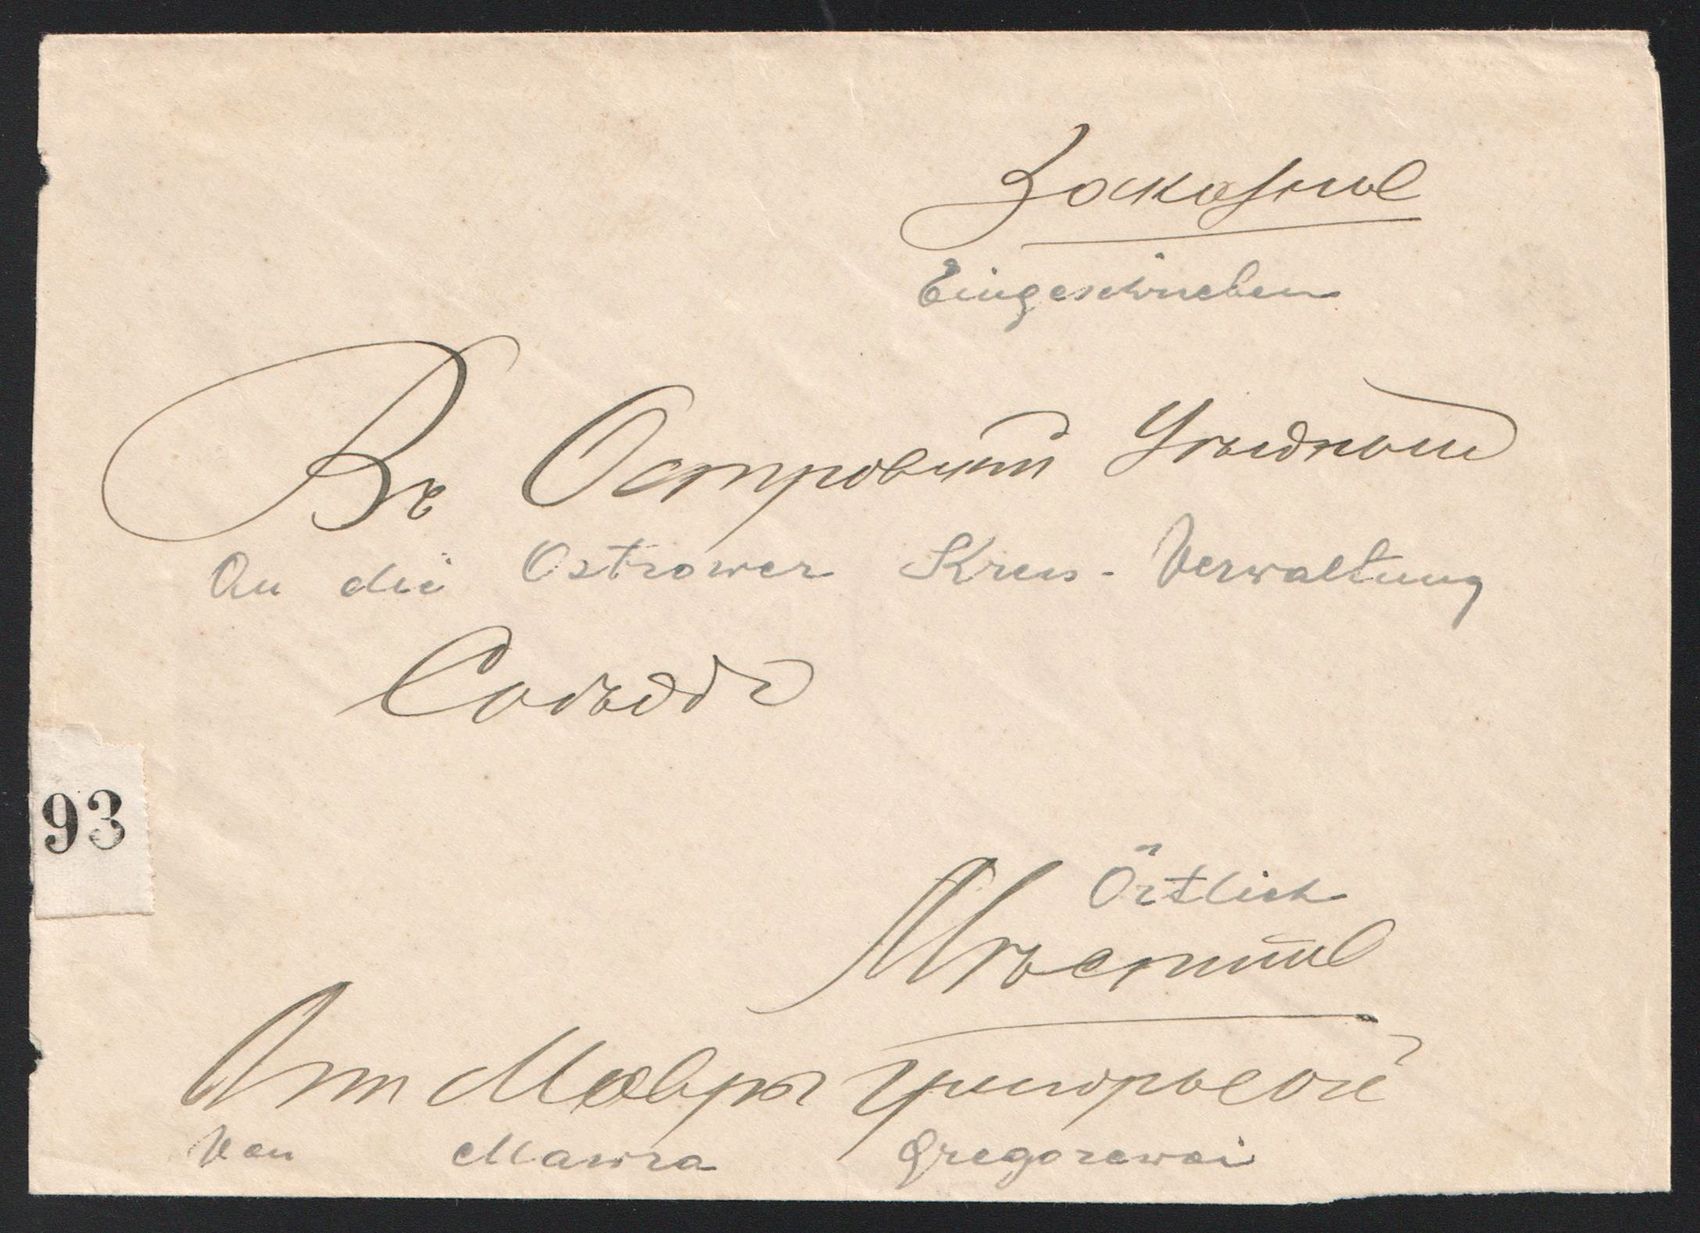 Заказное
Eingeschrieben
Въ Островскій Уѣздный
An die Ostrower Kreis-Verwaltung
Съѣздъ
93
Örtlich
Мѣстное
Отъ Мавры Григорьевой
Von Mawra Gregorewoi